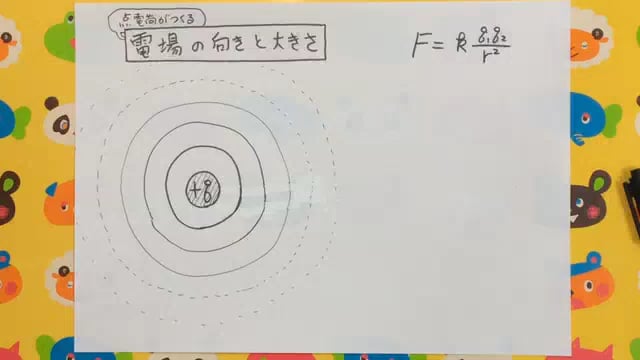 点電荷がつくる
電場の向きと大きさ
F = k q₁q₂/r²
+q